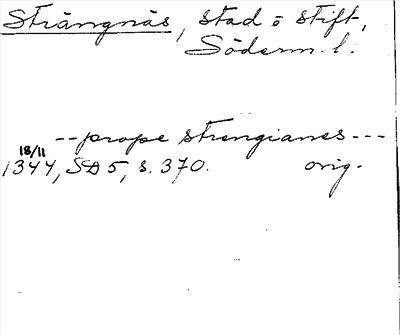 Strängnäs, stad o stift,
Söderm. l.
-- prope strengianes ---
18/11
1344, SD 5, s. 370. orig.